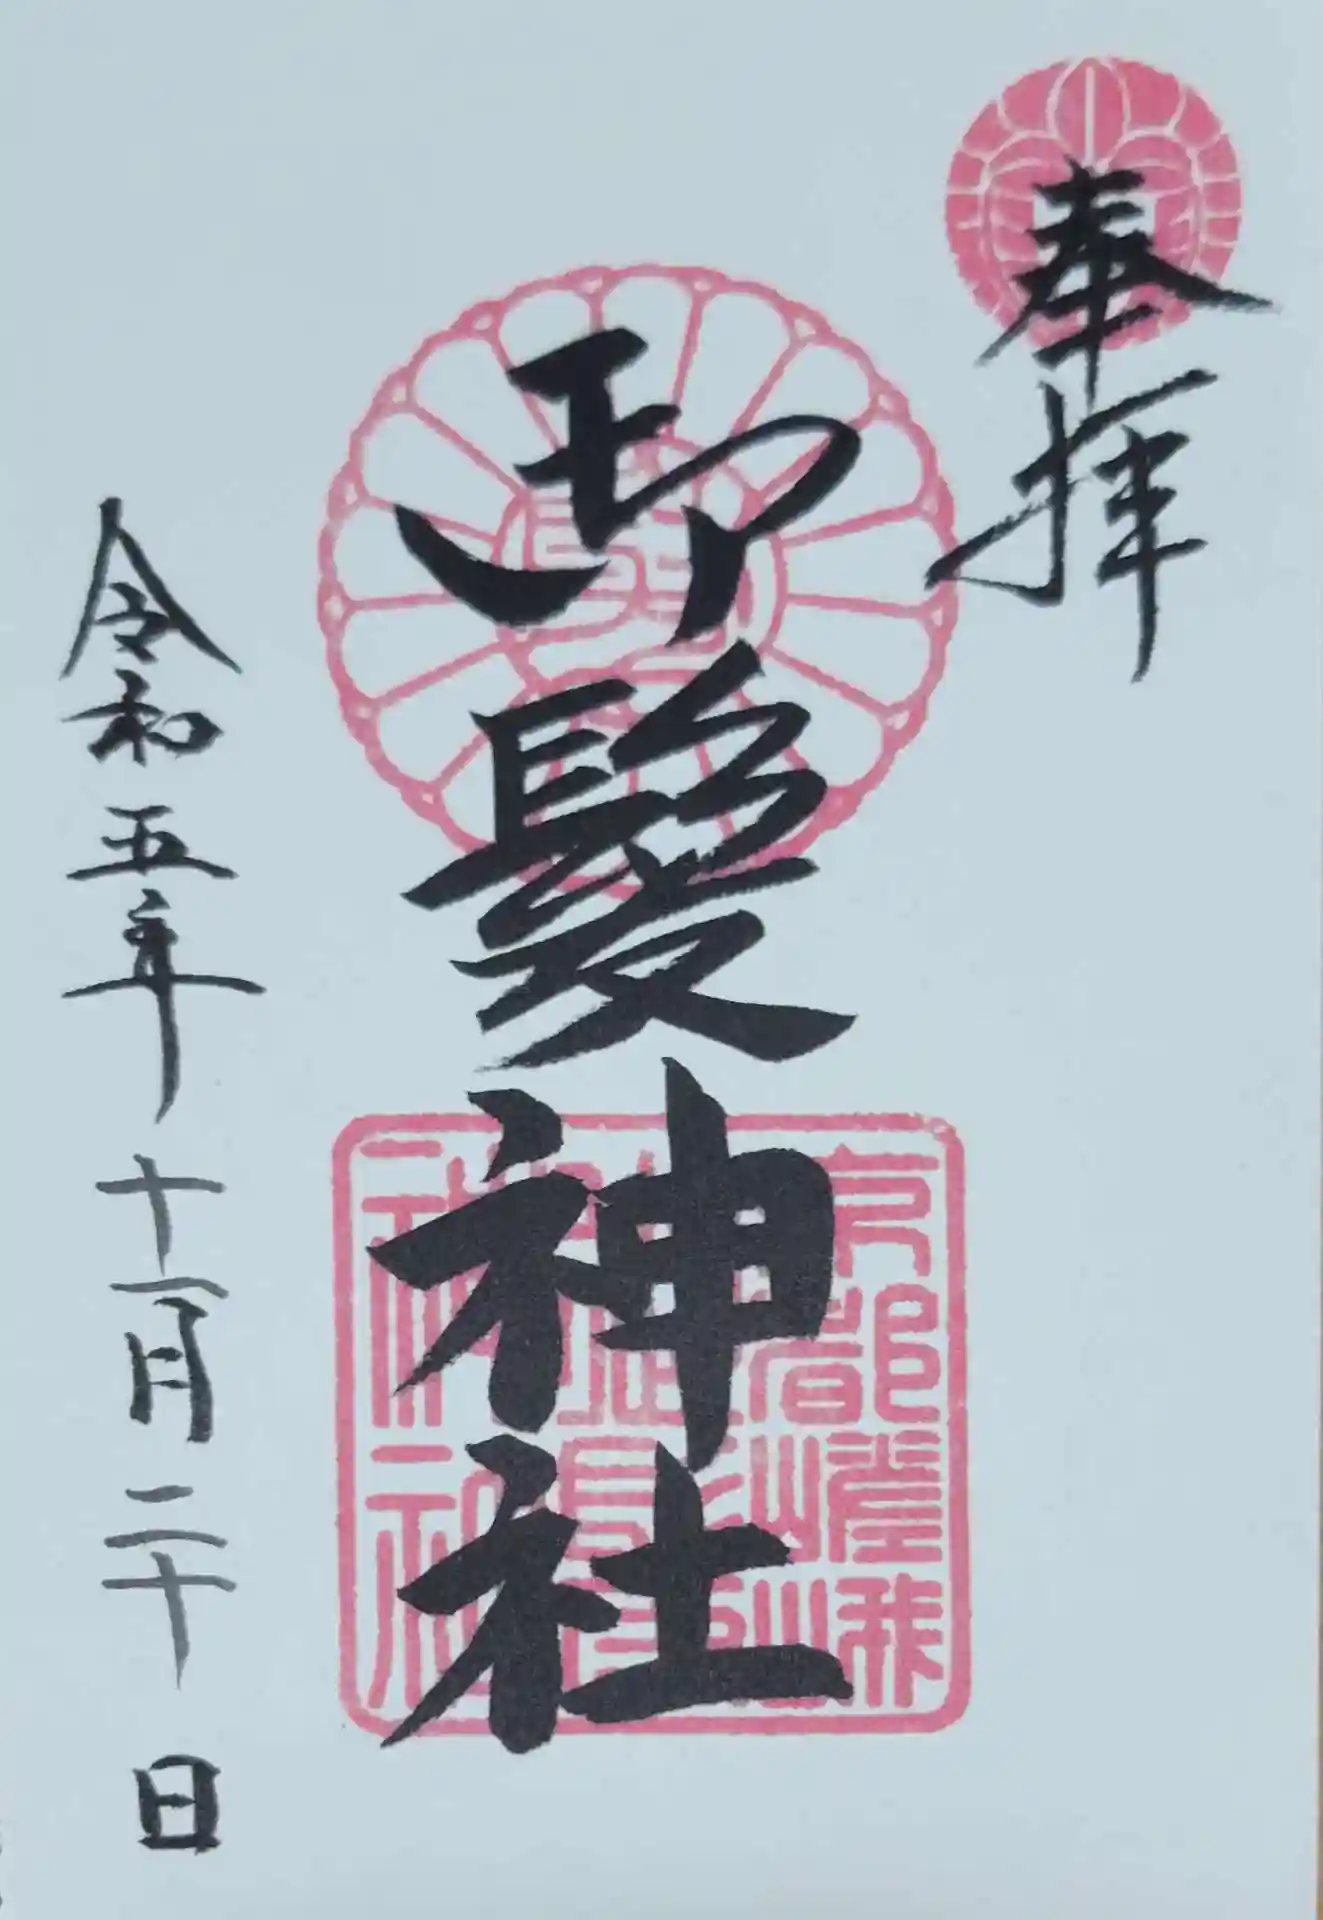 奉拝
御髪神社
京都嵯峨
御髪
神社
令和五年十一月二十日